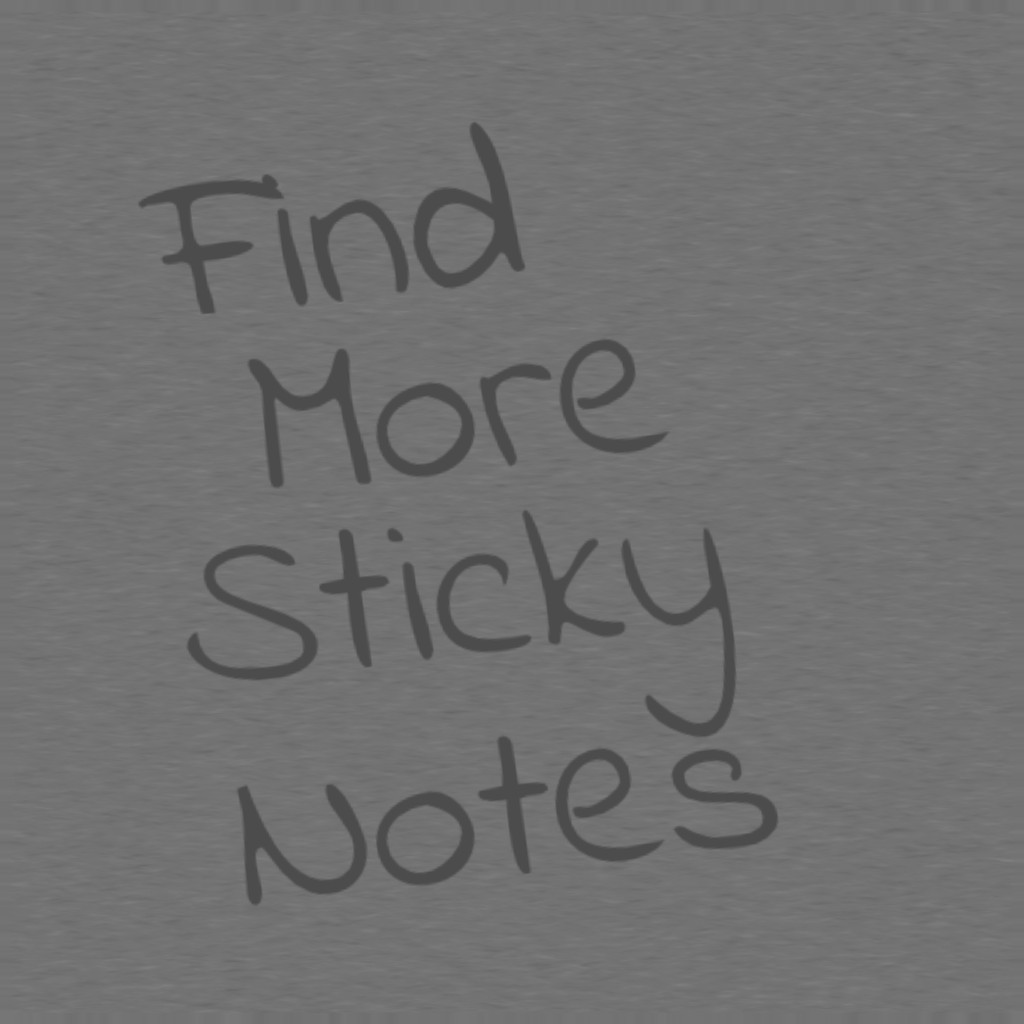 Find
More
Sticky
Notes